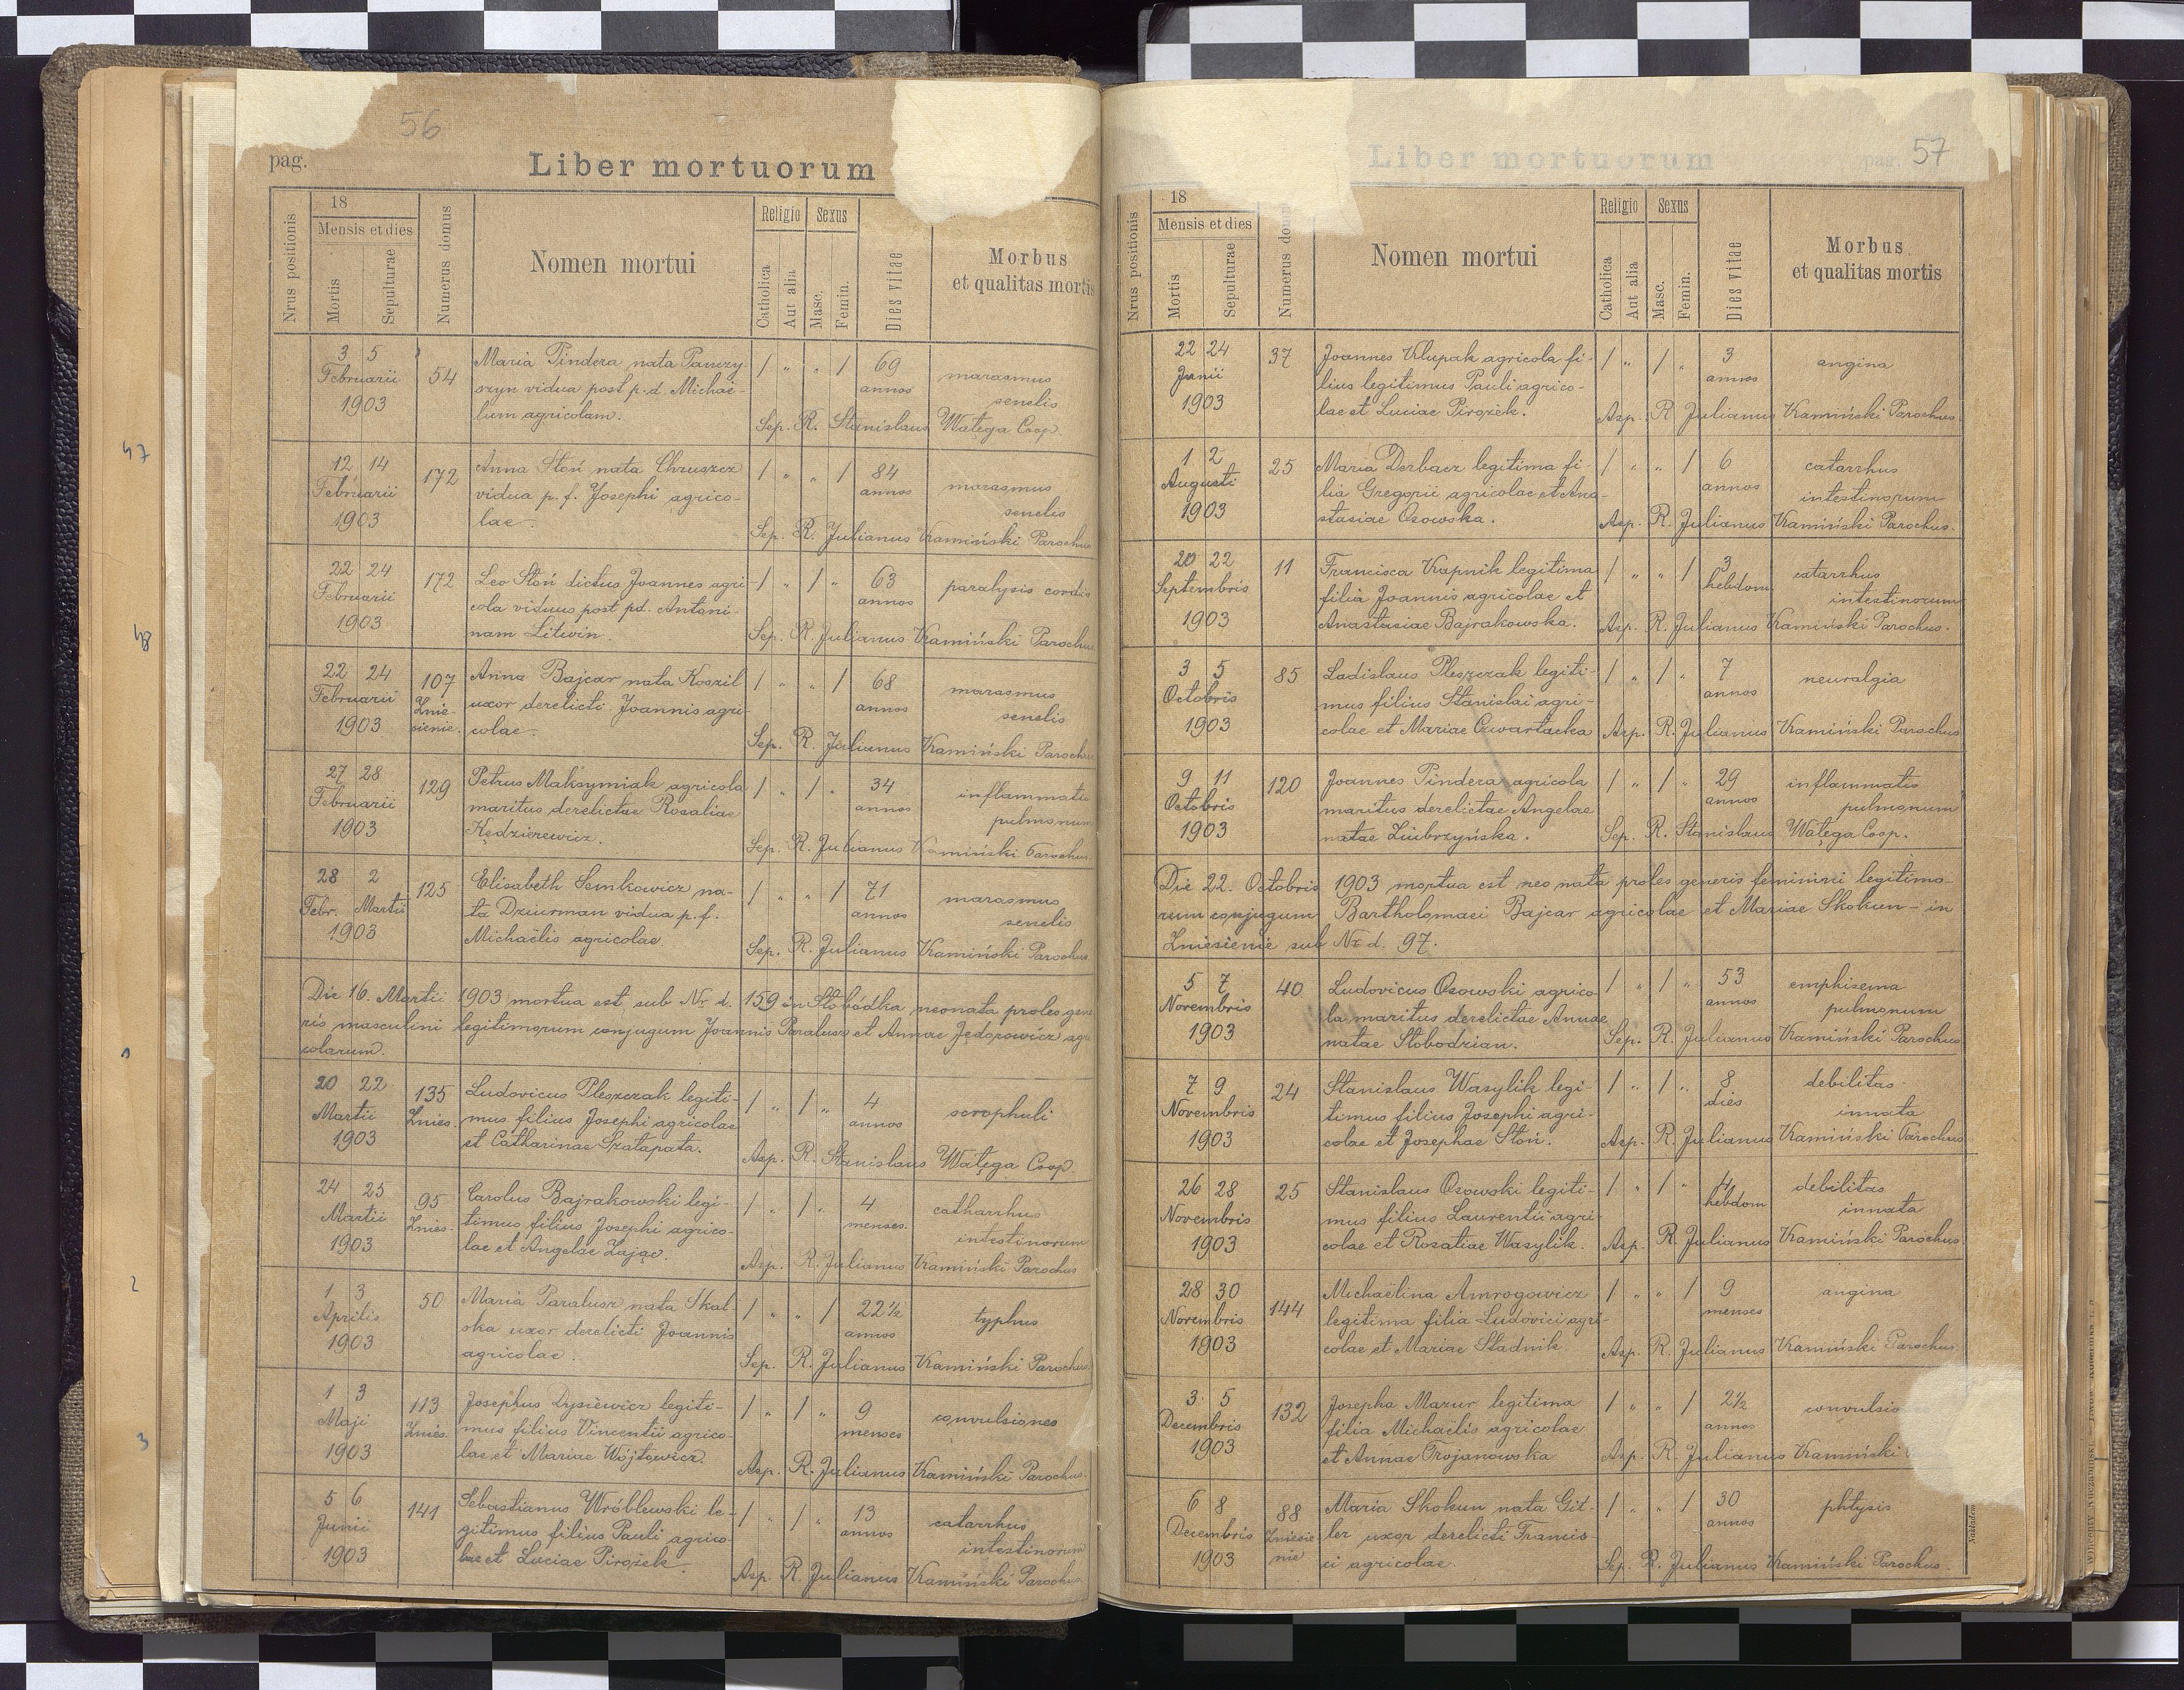 56
pag.
Liber mortuorum
Nrus positionis
18
Mensis et dies
Mortis
Sepulturae
Numerus domus
Nomen mortui
Religio
Catholica
Aut alia
Sexus
Masc.
Femin.
Dies vitae
Morbus
et qualitas mortis
3 5
Februarii
1903
54
Maria Pindera nata Panczy-
szyn vidua post p. d. Michaë-
lum agricolam.
/ " " /
69
annos
marasmus
senelis
Sep. R. Stanislaus Wałęga Coop.
12 14
Februarii
1903
172
Anna Stoń nata Chruszcz
vidua p. f. Josephi agrico-
lae.
/ " " /
84
annos
marasmus
senelis
Sep. R. Julianus Kamiński Parochus
22 24
Februarii
1903
172
Leo Stoń dictus Joannes agri
cola viduus post pd. Antoni-
nam Litwin.
/ " / "
63
annos
paralysis cordis
Sep. R. Julianus Kamiński Parochus
22 24
Februarii
1903
107
Znie-
sienie.
Anna Bajcar nata Koszil
uxor derelicti Joannis agri-
colae.
/ " " /
68
annos
marasmus
senelis
Sep. R. Julianus Kamiński Parochus
27 28
Februarii
1903
129
Petrus Maksymiak agricola
maritus derelictae Rosaliae
Kędzierewicz.
/ " / "
34
annos
inflammatio
pulmonum
Sep. R. Julianus Kamiński Parochus.
28 2
Febr. Martii
1903
125
Elisabeth Semkowicz na-
ta Dziurman vidua p. f.
Michaëlis agricolae
/ " " /
71
annos
marasmus
senelis
Sep. R. Julianus Kamiński Parochus
Die 16. Martii 1903 mortua est sub Nr d. 159 in Słobódka neonata proles gene
ris masculini legitimorum conjugum Joannis Paralusz et Annae Fedorowicz agri
colarum.
20 22
Martii
1903
135
Znies.
Ludovicus Pleszczak legiti-
mus filius Josephi agricolae
et Catharinae Szatapata.
/ " / "
4
annos
scrophuli
Asp. R. Stanislaus Wałęga Coop.
24 25
Martii
1903
95
Znies.
Carolus Bajrakowski legi-
timus filius Josephi agrico-
lae et Angelae Zając.
/ " / "
4
menses.
catharrhus
intestinorum
Asp. R. Julianus Kamiński Parochus
1 3
Aprilis
1903
50
Maria Paralusz nata Skal-
ska uxor derelicti Joannis
agricolae.
/ " " /
22½
annos
typhus
Sep. R. Julianus Kamiński Parochus
1 3
Maji
1903
113
Znies.
Josephus Dysiewicz legiti-
mus filius Vincentii agrico-
lae et Mariae Wójtowicz.
/ " / "
9
menses
convulsiones
Asp. R. Julianus Kamiński Parochus.
5 6
Junii
1903
141
Sebastianus Wróblewski le-
gitimus filius Pauli agrico-
lae et Luciae Pirożek.
/ " / "
13
annos
catarrhus
intestinorum
Asp. R. Julianus Kamiński Parochus
Liber mortuorum
pag. 57
Nrus positionis
18
Mensis et dies
Mortis
Sepulturae
Numerus domus
Nomen mortui
Religio
Catholica
Aut alia
Sexus
Masc.
Femin.
Dies vitae
Morbus
et qualitas mortis
22 24
Junii
1903
37
Joannes Klupak agricola fi-
lius legitimus Pauli agrico-
lae et Luciae Pirożek.
/ " / "
3
annos
angina
Asp. R Julianus Kamiński Parochus.
1 2
Augusti
1903
25
Maria Derbacz legitima fi-
lia Gregorii agricolae et Ana-
stasiae Osowska.
/ " " /
6
annos
catarrhus
intestinorum
Asp. R. Julianus Kamiński Parochus.
20 22
Septembris
1903
11
Francisca Kapnik legitima
filia Joannis agricolae et
Anastasiae Bajrakowska.
/ " " /
3
hebdom.
catarrhus
intestinorum
Asp. R. Julianus Kamiński Parochus.
3 5
Octobris
1903
85
Ladislaus Pleszczak legiti-
mus filius Stanislai agri-
colae et Mariae Czwartacka
/ " / "
7
annos
neuralgia
Asp. R. Julianus Kamiński Parochus
9 11
Octobris
1903
120
Joannes Pindera agricola
maritus derelictae Angelae
natae Ziubrzyńska.
/ " / "
29
annos
inflammatio
pulmonum
Sep. R. Stanislaus Wałęga Coop.
Die 22. Octobris 1903 mortua est neonata proles generis feminini legitimo-
rum conjugum Bartholomaei Bajcar agricolae et Mariae Skokun - in
Zniesienie sub Nr d. 97.
5 7
Novembris
1903
40
Ludovicus Osowski agrico
la maritus derelictae Annae
natae Słobodzian.
/ " / "
53
annos
emphisema
pulmonum
Sep. R. Julianus Kamiński Parochus
7 9
Novembris
1903
24
Stanislaus Wasylik legi-
timus filius Josephi agri-
colae et Josephae Stoń.
/ " / "
8
dies
debilitas
innata
Asp. R. Julianus Kamiński Parochus
26 28
Novembris
1903
25
Stanislaus Osowski legiti-
mus filius Laurentii agri
colae et Rosaliae Wasylik.
/ " / "
4
hebdom
debilitas
innata
Asp. R. Julianus Kamiński Parochus.
28 30
Novembris
1903
144
Michaëlina Amrogowicz
legitima filia Ludovici agri-
colae et Mariae Stadnik.
/ " " /
9
menses
angina
Asp. R. Julianus Kamiński Parochus.
3 5
Decembris
1903
132
Josepha Mazur legitima
filia Michaëlis agricolae
et Annae Trojanowska
/ " " /
2½
annos
convulsio
Asp. R. Julianus Kamiński
6 8
Decembris
1903
88
Zniesie
nie
Maria Skokun nata Git-
ler uxor derelicti Francis-
ci agricolae.
/ " " /
30
annos
phtysis
Sep. R. Julianus Kamiński Parochus.
Nakładem